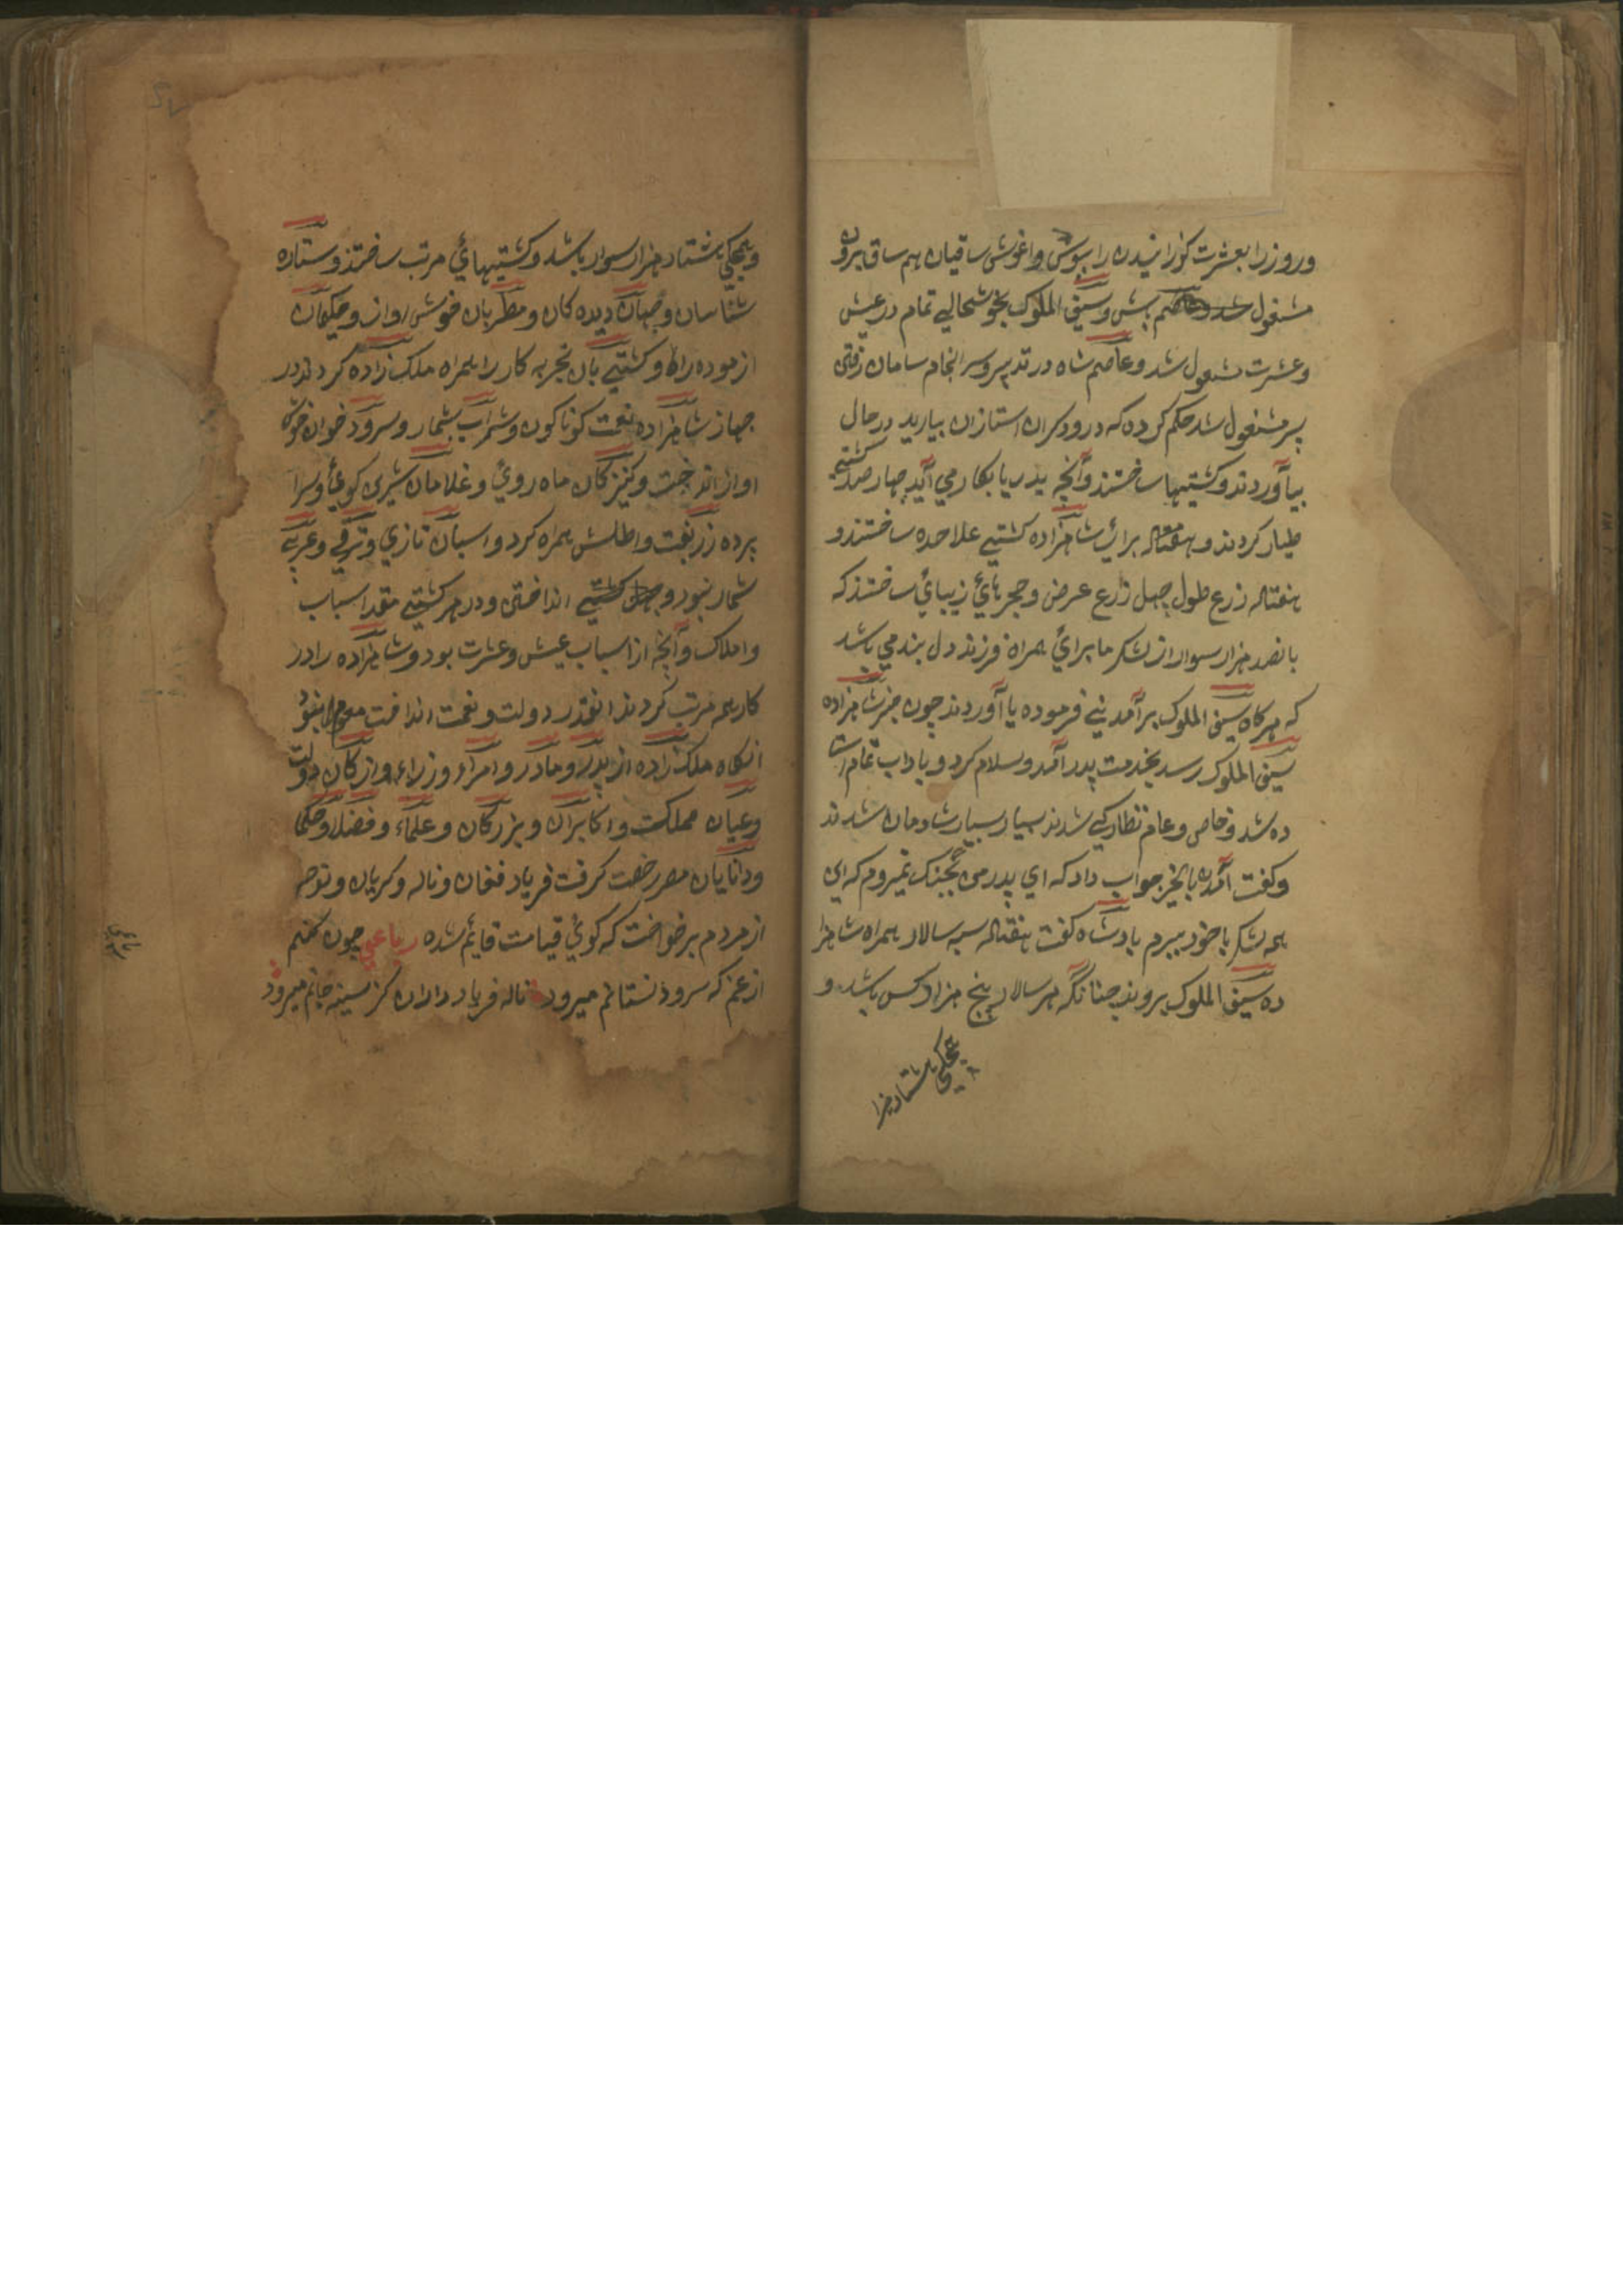 وروز را بعشرت کوزانیدن را بپوش واغوش ساقیان هم ساق برون
مشغول شد وسیف الملوک بخوشحالي تمام در عیش
وعشرت مشغول شد وعاصم شاه در تدبیر وسرانجام سامان رفتن
پسر مشغول شد حکم کرده که درودکران استازان بیارید در حال
بیآوردند وکشتیها ساختند وآنچه بدریا بکار مي آید چهار صد کشتي
طیار کردند و هفتاله برائ شاهزاده کشتي علاحده ساختند و
هفتاله زرع طول چهل زرع عرض وحجرهائ زیبائ ساختند که
بانصد هزار سوار از لشکر ما برائ همراه فرزند دل بند مي باشد
که هرکاه سیف الملوک برآمدیني فرموده یا آوردند چون خبر شاهزاده
سیف الملوک رسد بخدمت پدر آمد وسلام کرد و باداب تمام استا
ده شد وخاص وعام نظارکي شدند بسیار بسیار شادمان شدند
وکفت آمدن بالخیر جواب داد که اي پدر من بجنک نمیروم که این
همه لشکر با خود ببرم بادشاه کفت هفتاله سپه سالار همراه شاهزا
ده سیف الملوک بروند چنانکه هر سالار پنج هزار کس باشد و
یمکي هشتاد هزا
ویمکي هشتاد هزار سوار باشد وکشتیهائ مرتب ساختند وستاره
شناسان وجهان دیده کان ومطربان خوش اواز وحکیمان
ازموده راه وکشتي بان تجربه کار را همراه ملک زاده کردند در
جهاز شاهزاده نعمت کوناکون وشراب بشمار وسرود خوان خوش
اواز انداخت وکنیزکان ماه روئ وغلامان شیرین کوئ وسرا
پرده زربفت واطلس همراه کرد واسپان تازي وترقي وعربي
شمار نبود کشتي انداختن ودر هر کشتي مقدا اسباب
واملاک وآنچه از اسباب عیش وعشرت بود وشاهزاده را در
کار همه مرتب کردند انقدر دولت ونعمت انداخت نبود
انکاه ملک زاده از پدر ومادر وامراء وزراء وارکان دولت
وعیان مملکت واکابران وبزرکان وعلماء وفضلا وحکما
ودانایان مصر رخصت کرفت فریاد فغان وناله وکریان ونوحه
از مردم برخواخت که کوئ قیامت قایم شده رباعي چون کنم
از غم که سرود نستانم میرود ناله فریاد داران کز سینه جانم میرود